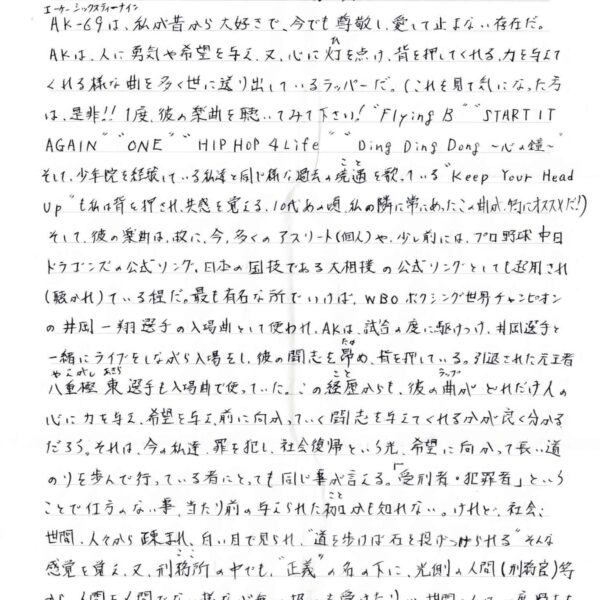 エーケーシックスティーナイン
AK-69は、私が昔から大好きで、今でも尊敬し、愛して止まない存在だ。
AKは、人に勇気や希望を与え、又、心に灯を点け、背を押してくれる、力を与えて
くれる様な曲を多く世に送り出しているラッパーだ。(これを見て気になった方
は、是非!!1度、彼の楽曲を聴いてみて下さい!"Flying B" "START IT
AGAIN" "ONE" "HIP HOP 4 Life" "Ding Ding Dong ~心の鐘~"
そして、少年院を経験している私達と同じ様な過去の境遇を歌っている"Keep Your Head
Up"も私は背を押され、共感を覚える、10代あの頃、私の隣に常にあったこの曲が、特にオススメだ!!)
そして、彼の楽曲は、故に、今、多くのアスリート(個人)や、少し前には、プロ野球中日
ドラゴンズの公式ソング、日本の国技である大相撲の公式ソングとしても起用され
(聴かれ)ている程だ。最も有名な所でいけば、WBOボクシング世界チャンピオン
の井岡一翔選手の入場曲として使われ、AKは、試合の度に駆けつけ、井岡選手と
一緒にライブをしながら入場をし、彼の闘志を昂め、背を押している。引退された元王者
八重樫 東選手も入場曲で使っていた。この経歴からも、彼の曲がどれだけ人の
心に力を与え、希望を与え、前に向かっていく闘志を与えてくれるかが良く分かる
だろう。それは、今の私達、罪を犯し、社会復帰という光、希望に向かって長い道
のりを歩んで行っている者にとっても同じ事が言える。「受刑者・犯罪者」という
ことで仕方のない事、当たり前の与えられた
かも知れない。けれど、社会、
世間、人々から疎まれ、白い目で見られ、"道を歩けば石を投げつけられる"そんな
感覚を覚え、又、刑務所の中でも、"正義"の名の下に、光側の人間(刑務官)等